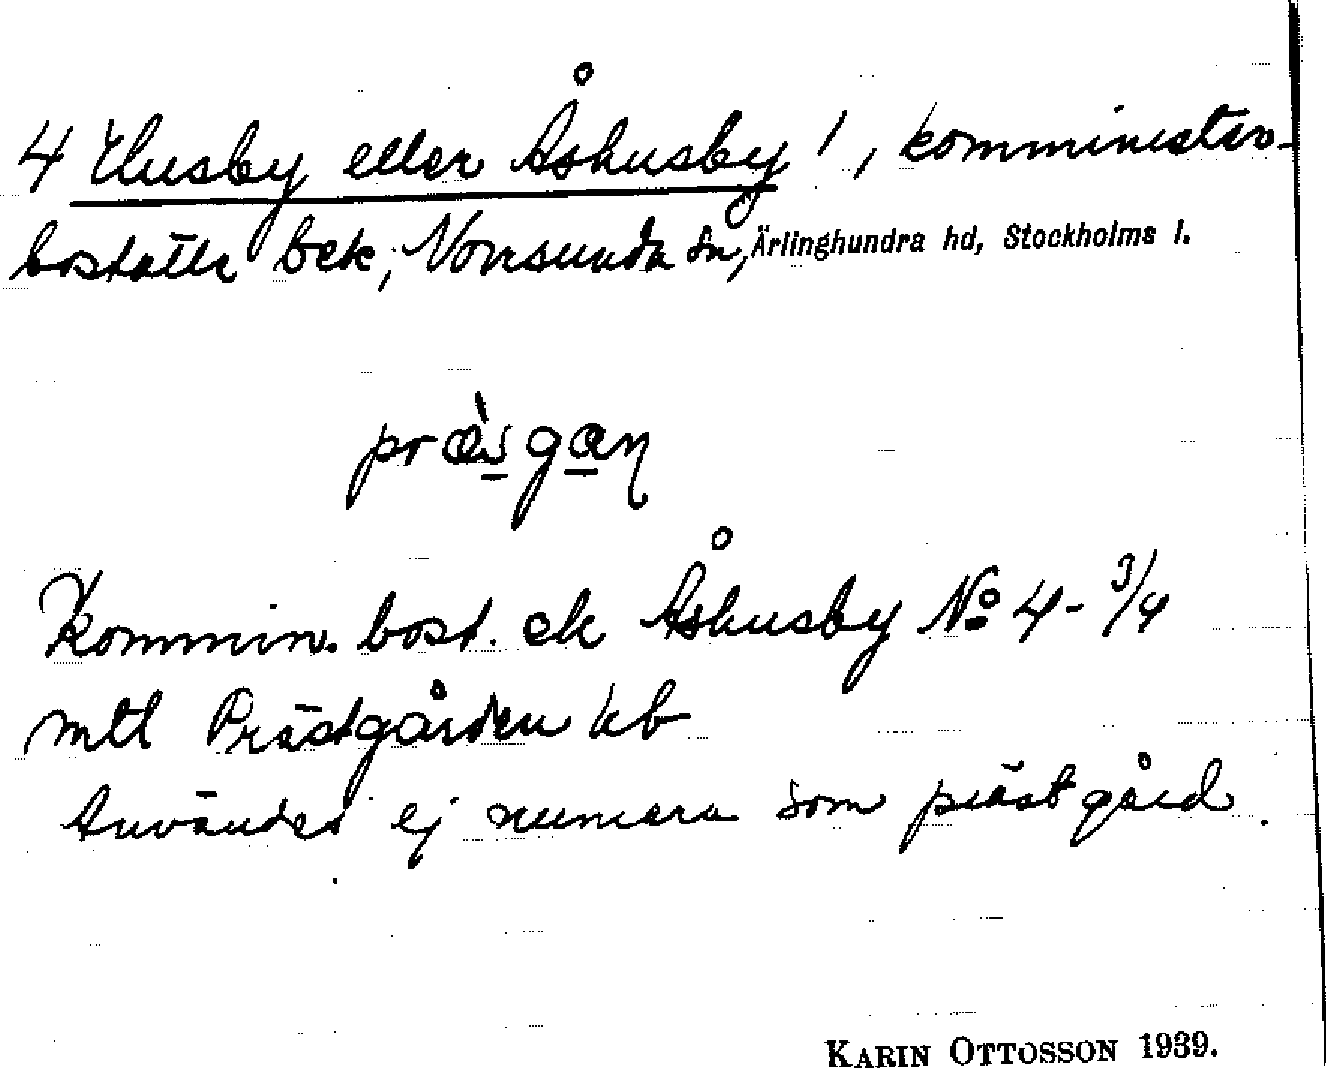 4 Husby eller Åshusby 1, komminister-
boställe bek, Norrsunda sn, Ärlinghundra hd, Stockholms l.
Kommin. bost. ek Åshusby No 4 - 3/4
mtl Prästgården kb
Användes ej numera som prästgård.
KARIN OTTOSSON 1939.